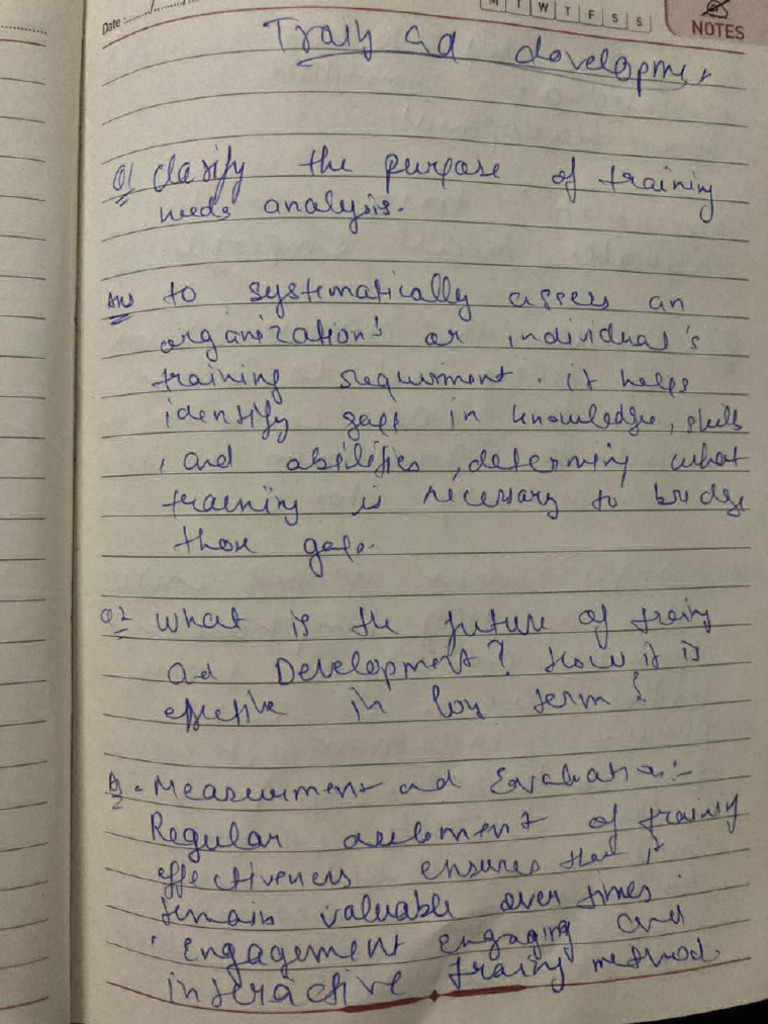 Date:
M T W T F S S
NOTES
Traing and development
Q1 Clarify the purpose of training
needs analysis.
Ans to systematically assess an
organization's or individual's
training requirment. it helps
identify gaps in knowledge, skills
, and abilities, determing what
training is necessary to bridge
those gaps.
Q2 What is the future of traing
ad Development? How it is
effective in long term?
A2 • Measurment and Evaluation:-
Regular of training
effectiveness ensures that it
remain valuable over times.
• Engagement engaging and
interactive traing method.